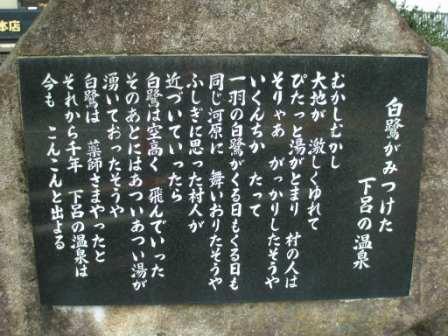 本店
白鷺がみつけた
下呂の温泉
むかしむかし
大地が 激しくゆれて
ぴたっと湯がとまり 村の人は
そりゃあ がっかりしたそうや
いくんちか たって
一羽の白鷺がくる日もくる日も
同じ河原に 舞いおりたそうや
ふしぎに思った村人が
近づいていったら
白鷺は空高く 飛んでいった
そのあとにはあついあつい湯が
湧いておったそうや
白鷺は 薬師さまやったと
それから千年 下呂の温泉は
今も こんこんと出よる